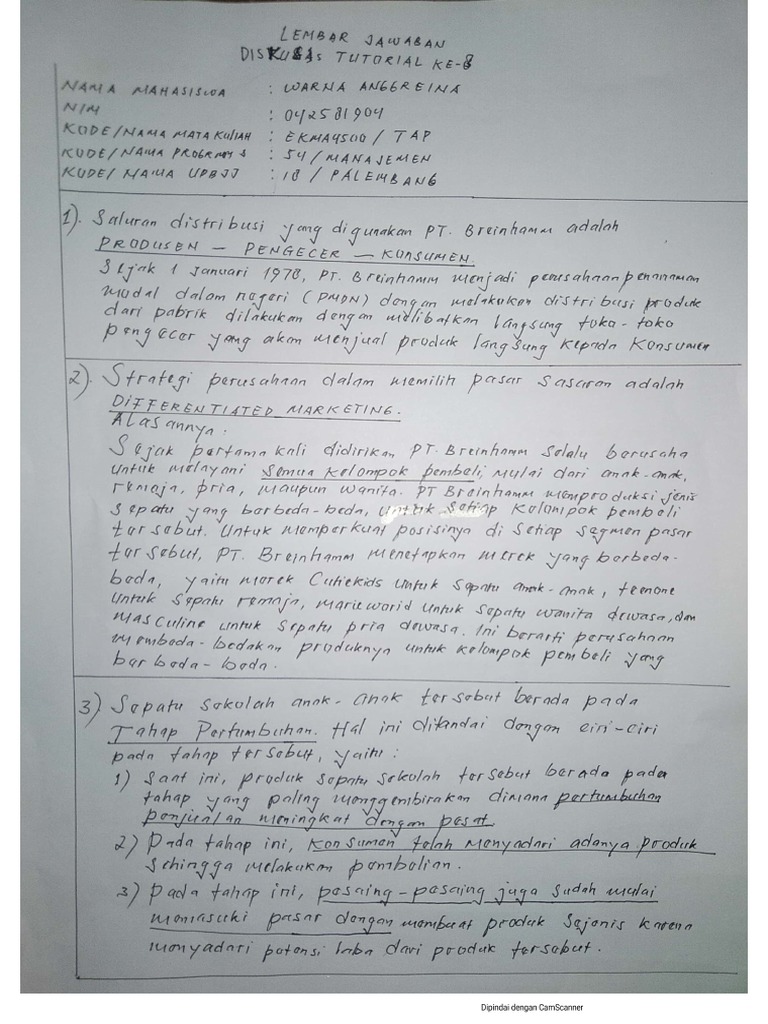 LEMBAR JAWABAN
DISKUSAS TUTORIAL KE-8
NAMA MAHASISWA : WARNA ANGGREINA
NIM : 042581904
KODE/NAMA MATA KULIAH : EKMA4500 / TAP
KODE/NAMA PROGRAM S : 54/MANAJEMEN
KODE/ NAMA UPBJJ : 18 / PALEMBANG
1). Saluran distribusi yang digunakan PT. Breinhamm adalah
PRODUSEN – PENGECER – KONSUMEN.
Sejak 1 Januari 1978, PT. Breinhamm menjadi perusahaan penanaman
modal dalam negeri (PMDN) dengan melakukan distribusi produk
dari pabrik dilakukan dengan melibatkan langsung toko-toko
pengecer yang akan menjual produk langsung kepada Konsumen
2). Strategi perusahaan dalam memilih pasar sasaran adalah
DIFFERENTIATED MARKETING.
Alasannya :
Sejak pertama kali didirikan PT. Breinhamm selalu berusaha
untuk melayani semua kelompok pembeli, mulai dari anak-anak,
remaja, pria, maupun wanita. PT Breinhamm memproduksi jenis
sepatu yang berbeda-beda, untuk setiap kelompok pembeli
tersebut. Untuk memperkuat posisinya di setiap segmen pasar
tersebut, PT. Breinhamm menetapkan merek yang berbeda-
beda, yaitu merek Cutiekids untuk sepatu anak-anak, teenone
untuk sepatu remaja, marieworld untuk sepatu wanita dewasa, dan
masculine untuk sepatu pria dewasa. Ini berarti perusahaan
membeda-bedakan produknya untuk kelompok pembeli yang
berbeda-beda.
3) Sepatu sekolah anak-anak tersebut berada pada
Tahap Pertumbuhan. Hal ini ditandai dengan ciri-ciri
pada tahap tersebut, yaitu :
1) Saat ini, produk sepatu sekolah tersebut berada pada
tahap yang paling menggembirakan dimana pertumbuhan
penjualan meningkat dengan pesat.
2) Pada tahap ini, konsumen telah menyadari adanya produk
sehingga melakukan pembelian.
3) Pada tahap ini, pesaing-pesaing juga sudah mulai
memasuki pasar dengan membuat produk sejenis karena
menyadari potensi laba dari produk tersebut.
Dipindai dengan CamScanner